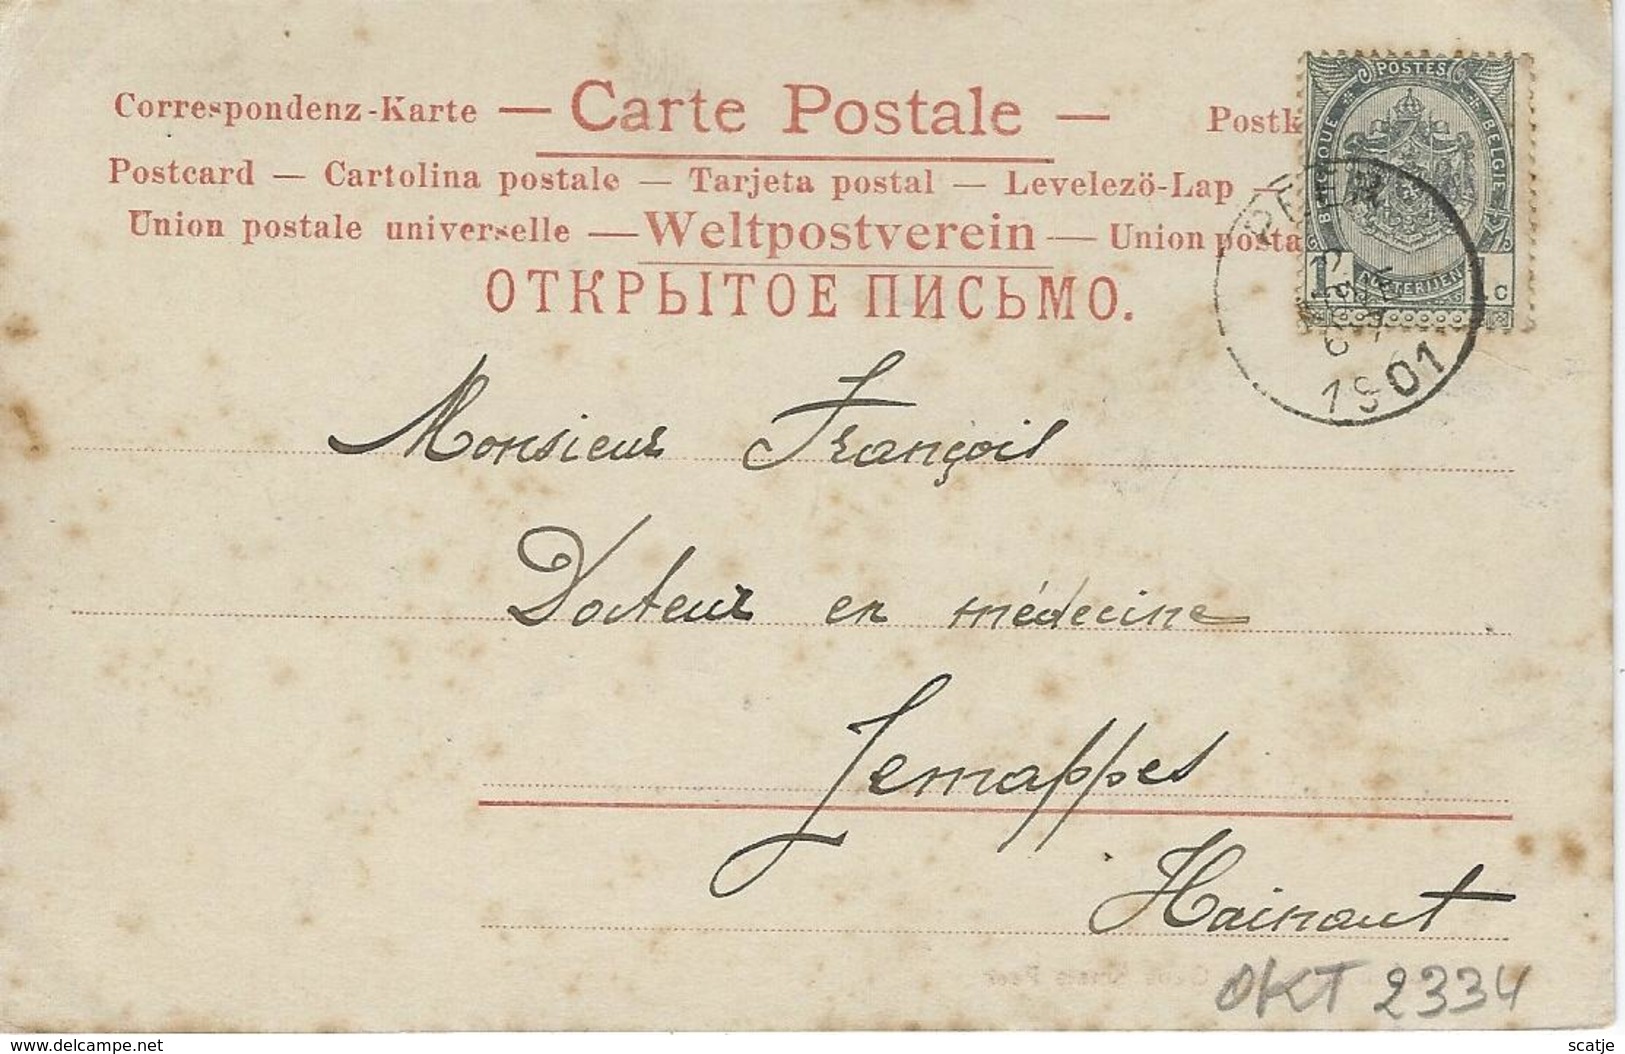 Correspondenz-Karte — Carte Postale — Postk
Postcard — Cartolina postale — Tarjeta postal — Levelezö-Lap —
Union postale universelle — Weltpostverein — Union posta
ОТКРЫТОЕ ПИСЬМО.
POSTES
BELGIQUE BELGIE
1 1 c
PEER
1901
Monsieur François
Docteur en médecine
Jemappes
Hainaut
OKT 2334
www.delcampe.net
scatje